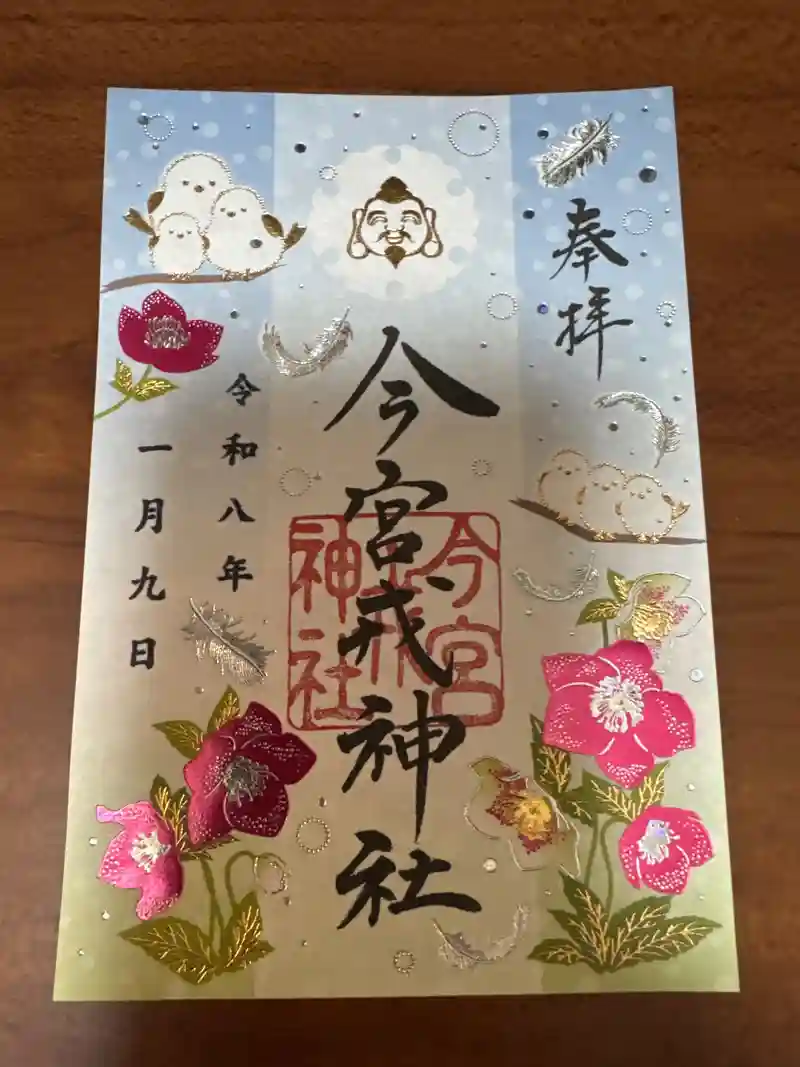 奉拝
今宮戎神社
今宮
戎
神社
令和八年
一月九日